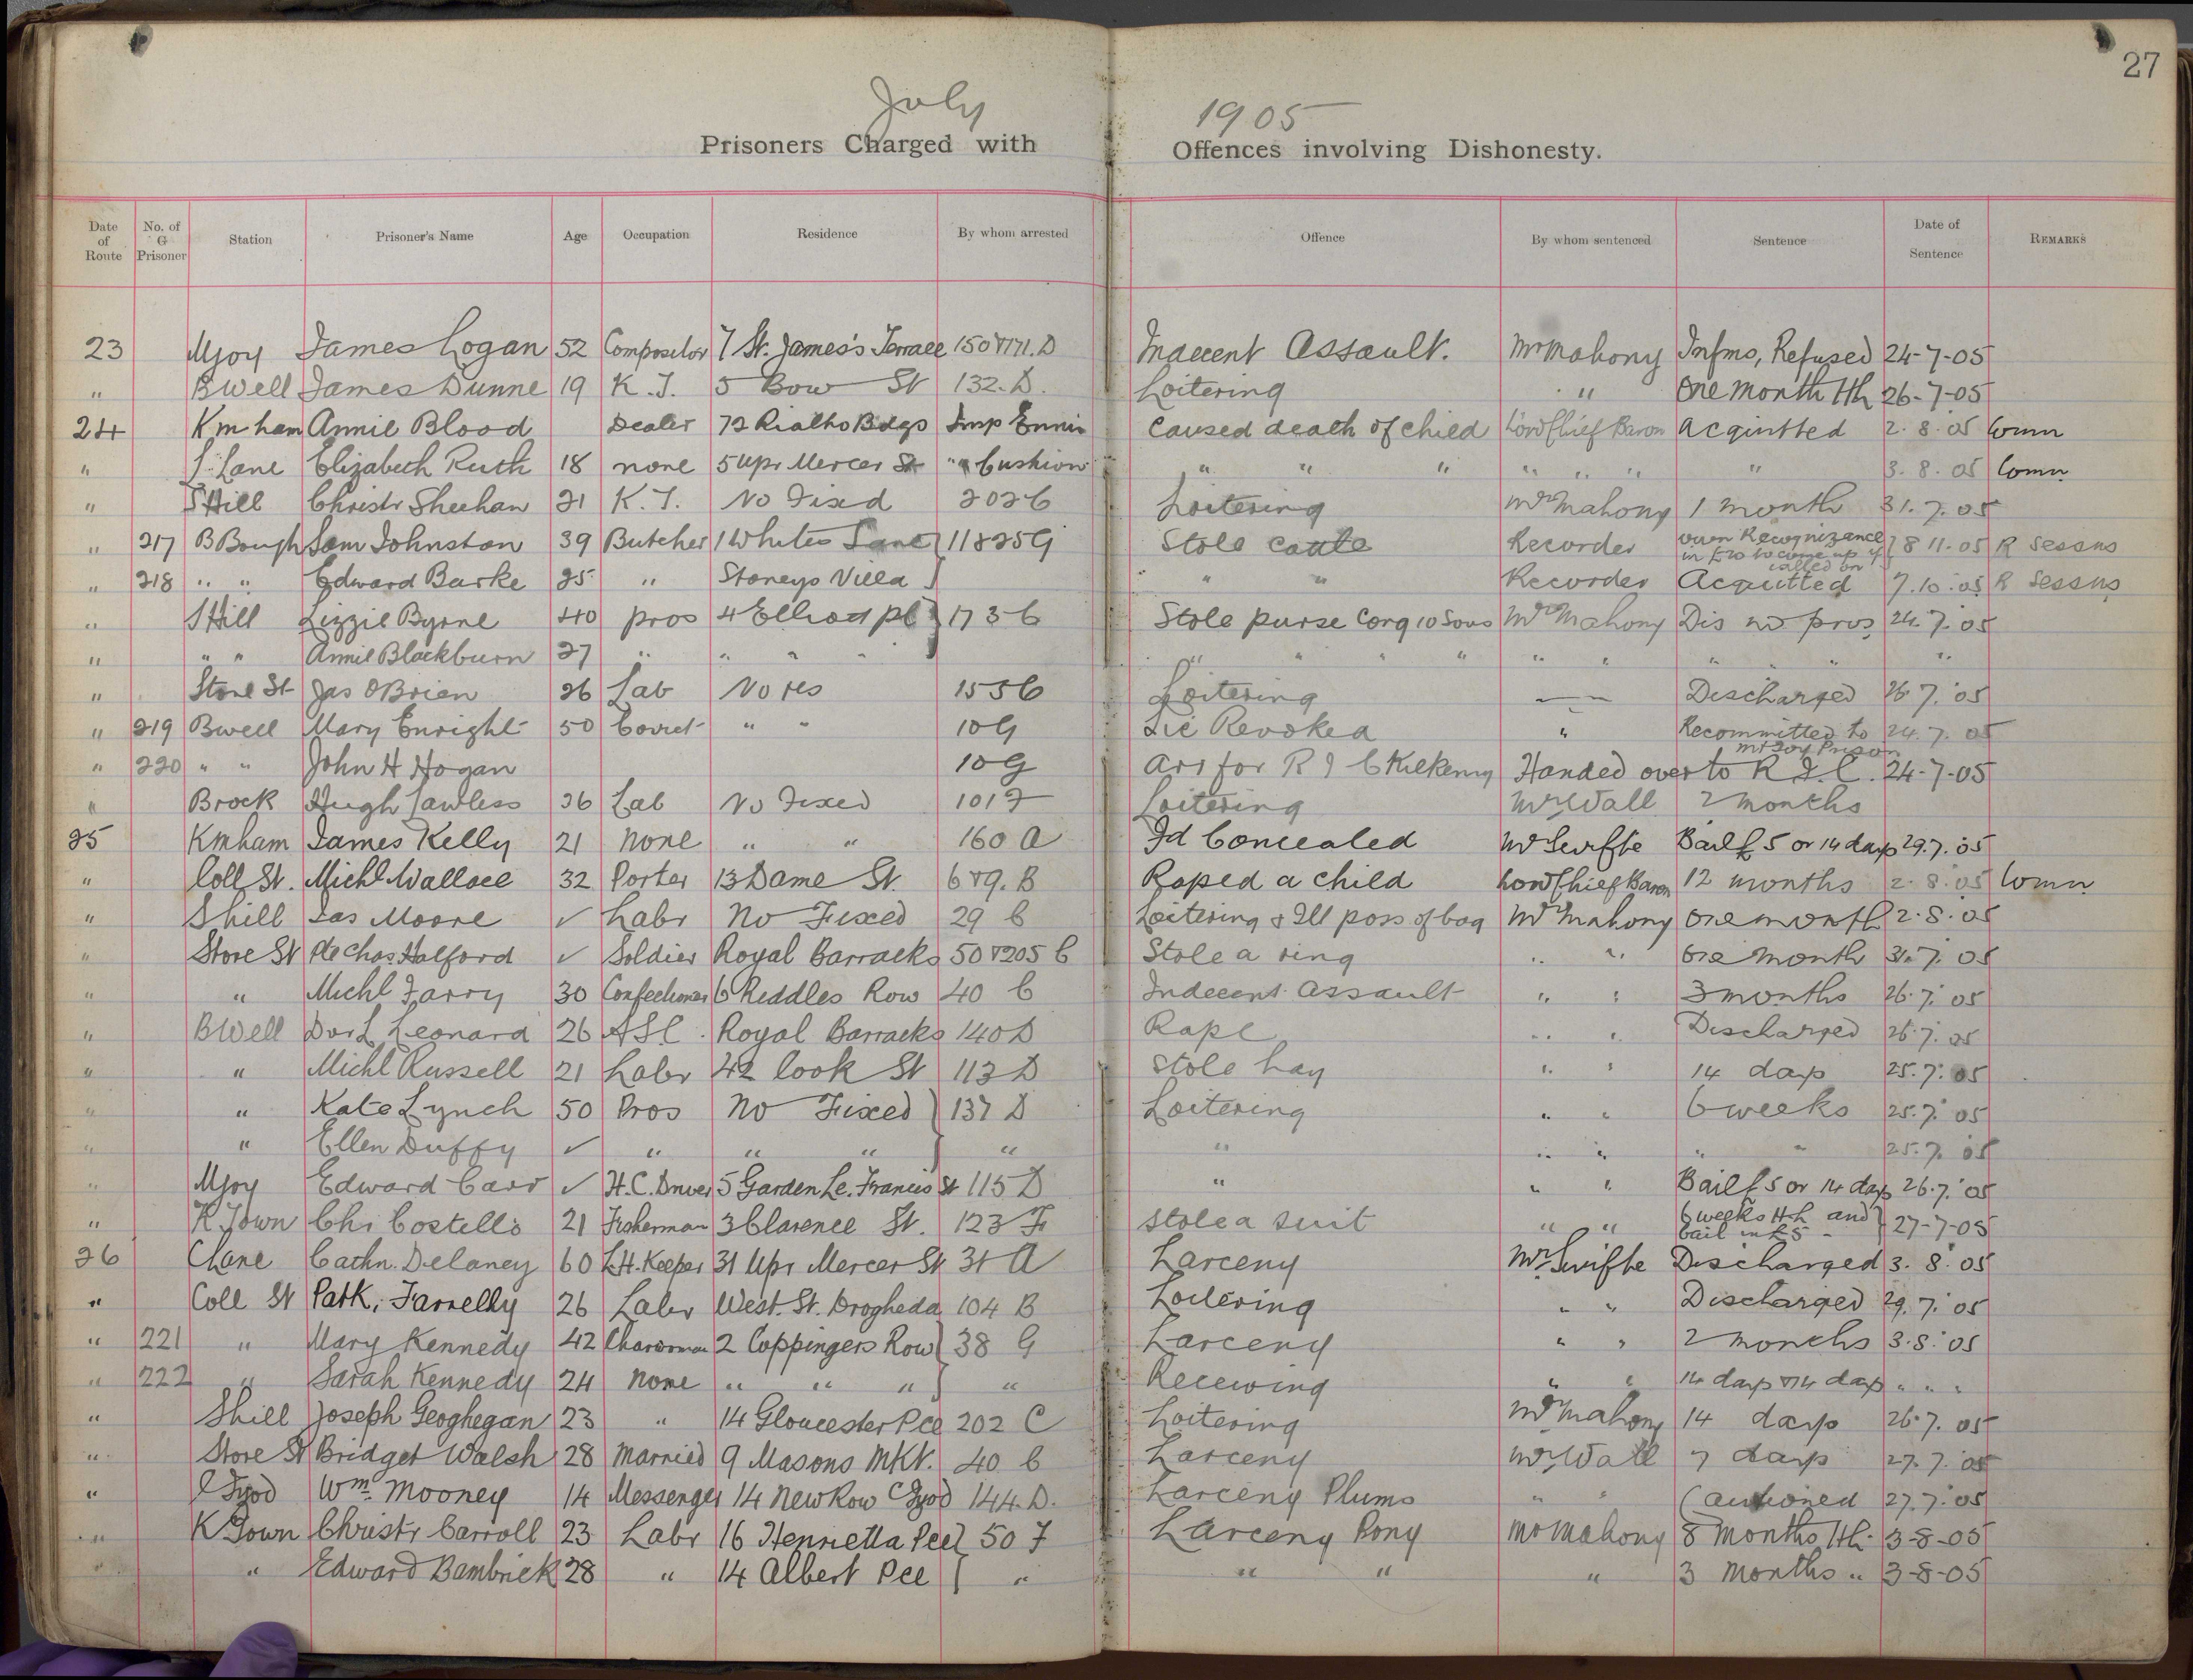 27
July 1905
Prisoners Charged with Offences involving Dishonesty.
Date of Route No. of G Prisoner Station Prisoner's Name Age Occupation Residence By whom arrested Offence By whom sentenced Sentence Date of Sentence REMARKS
23 Mjoy James Logan 52 Compositor 7 St. James's Terrace 150 & 171. D Indecent Assault. Mr Mahony Infms, Refused 24-7-05
" Bwell James Dunne 19 K. T. 5 Bow St 132. D. Loitering " One month Hh 26-7-05
24 Kmham Annie Blood Dealer 72 Rialto Bdgs Insp Ennis Caused death of child Lord Chief Baron Acquitted 2. 8. 05 Comn
" Lane Elizabeth Ruth 18 none 5 Upr Mercer St " Cushion " " " " " " " 3. 8. 05 Comn
" SHill Christr Sheehan 21 K. T. No Fixed 202 C Loitering Mr Mahony 1 month 31. 7. 05
" 217 B Bough Sam Johnston 39 Butcher 1 Whites Lane } 11 & 25 G Stole cattle Recorder own Recognizance in £20 to come up if called on } 8 11. 05 R Sessns
" 218 " " Edward Burke 25 " Stoneys Villa } " " Recorder Acquitted 7. 10. 05 R Sessns
" SHill Lizzie Byrne 40 pros 4 Elliott pl } 173 C Stole purse Cong 10 Sovs Mr Mahony Dis no pros 24. 7. 05
" " " Annie Blackburn 27 " " " " " " " " " " " " " "
" Store St Jas OBrien 26 Lab No res 155 C Loitering — Discharged 26. 7. 05
" 219 Bwell Mary Enright 50 Convct " " 10 G Lic Revoked " Recommitted to Mt Joy Prison 24. 7. 05
" 220 " " John H Hogan 10 G Arr for R I C Kilkenny Handed over to R. I. C. 24-7-05
" Brock Hugh Lawless 36 Lab No Fixed 101 F Loitering Mr Wall 2 months
25 Kmham James Kelly 21 none " " 160 A Fd Concealed Mr Swifte Bail £5 or 14 days 29. 7. 05
" Coll St. Michl Wallace 32 Porter 13 Dame St. 6 & 9. B Raped a child Lord Chief Baron 12 months 2. 8. 05 Comn
" Shill Jas Moore ✓ Labr No Fixed 29 C Loitering & Ill poss of bag Mr Mahony one month 2. 8. 05
" Store St Pte Chas Halford ✓ Soldier Royal Barracks 50 & 205 C Stole a ring " " One month 31. 7. 05
" " Michl Farry 30 Confectioner 6 Riddles Row 40 C Indecent Assault " " 3 months 26. 7. 05
" BWell Dvr L Leonard 26 A S C. Royal Barracks 140 D Rape " " Discharged 26. 7. 05
" " Michl Russell 21 Labr 42 Cook St 113 D Stole hay " " 14 days 25. 7. 05
" " Kate Lynch 50 Pros No Fixed } 137 D Loitering " " 6 weeks 25. 7. 05
" " Ellen Duffy ✓ " " " } " " " " " " 25. 7. 05
" Mjoy Edward Carr ✓ H. C. Driver 5 Garden Le. Francis St 115 D " " " Bail £5 or 14 days 26. 7. 05
" K Town Chr Costello 21 Fisherman 3 Clarence St. 123 F Stole a suit " " 6 weeks Hh and bail in £5 } 27-7-05
26 Clane Cathn. Delaney 60 L. H. Keeper 31 Upr Mercer St 31 A Larceny Mr Swifte Discharged 3. 8. 05
" Coll St Patk. Farrelly 26 Labr West. St. Drogheda 104 B Loitering " " Discharged 29. 7. 05
" 221 " Mary Kennedy 42 Charwoman 2 Coppingers Row } 38 G Larceny " " 2 months 3. 8. 05
" 222 " Sarah Kennedy 24 none " " " } " Receiving " " 14 days & 14 days " " "
" Shill Joseph Geoghegan 23 " 14 Gloucester Pce 202 C Loitering Mr Mahony 14 days 26. 7. 05
" Store St Bridget Walsh 28 Married 9 Masons Mkt. 40 C Larceny Mr Wall 7 days 27. 7. 05
" C Fyod Wm. Mooney 14 Messenger 14 New Row C Fyod 144. D. Larceny Plums " " Cautioned 27. 7. 05
" K Town Christr Carroll 23 Labr 16 Henrietta Pce } 50 F Larceny Pony Mr Mahony 8 Months Hh. 3-8-05
" " Edward Bambrick 28 " 14 Albert Pce } " " " " 3 Months " 3-8-05